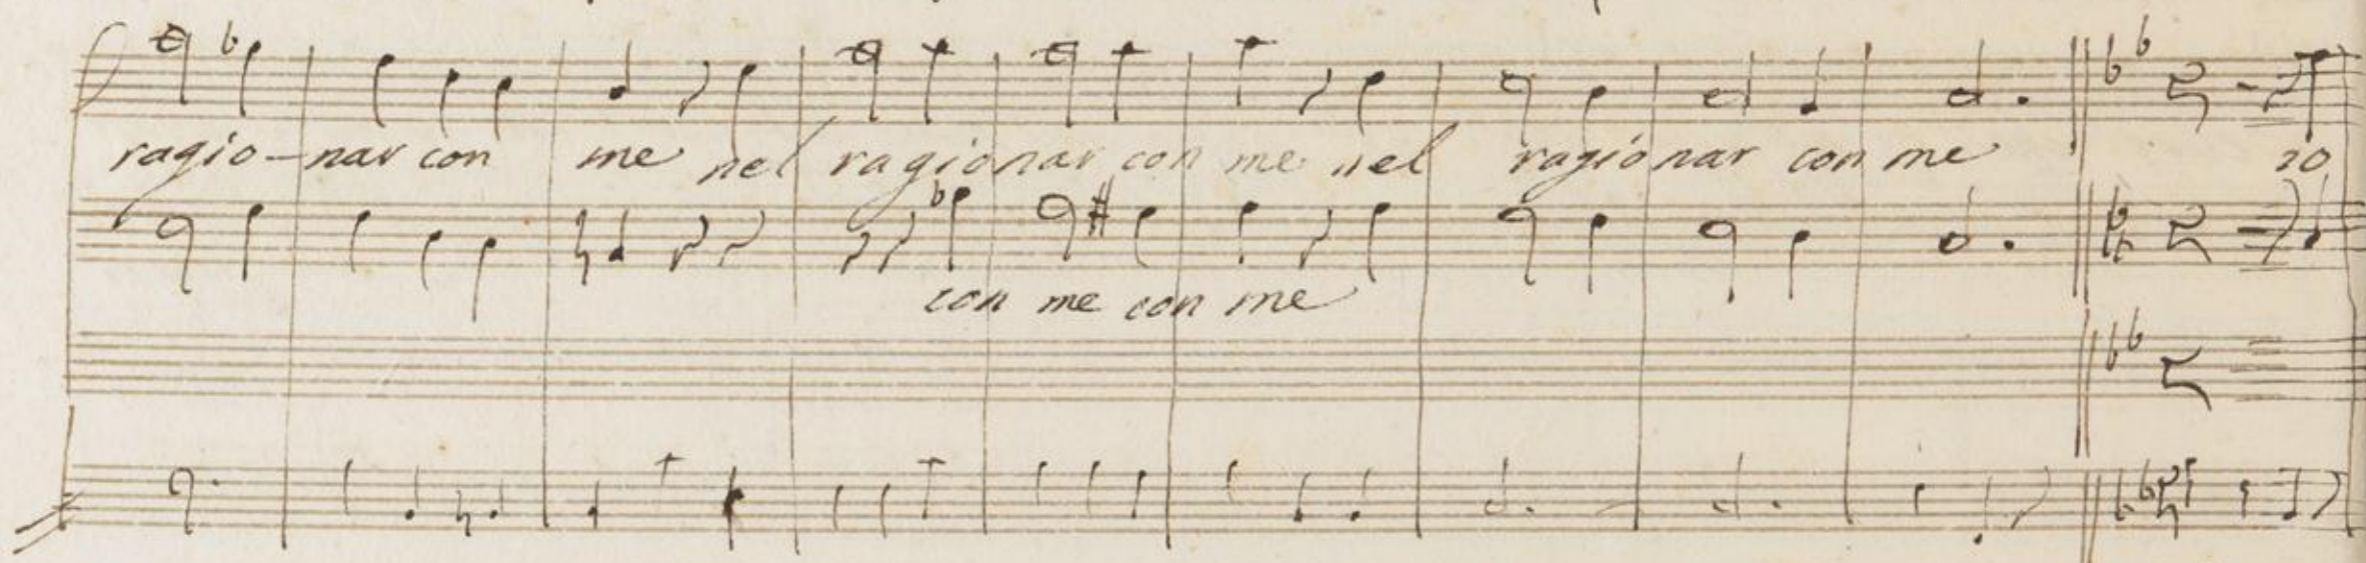 ragio-nar con me nel ragionar con me nel ragionar con me io
con me con me